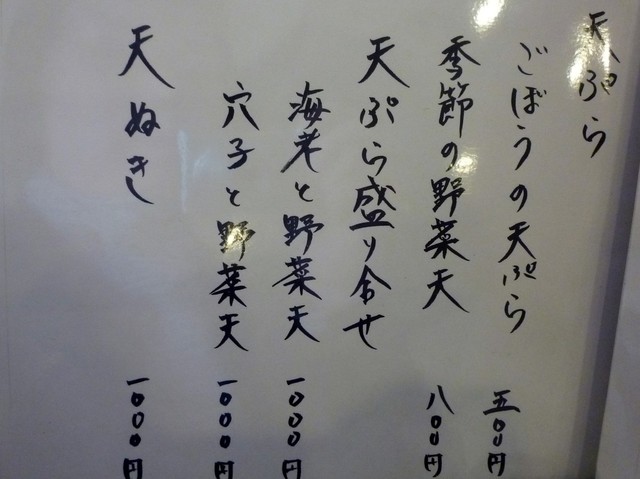 天ぷら
ごぼうの天ぷら 五〇〇円
季節の野菜天 八〇〇円
天ぷら盛り合せ
海老と野菜天 一〇〇〇円
穴子と野菜天 一〇〇〇円
天ぬき 一〇〇〇円